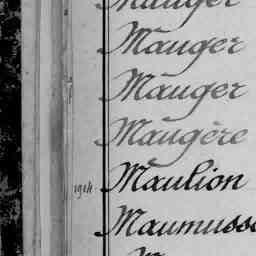 Mauger
Mauger
Mauger
Maugère
1914 Maulion
Maumusso